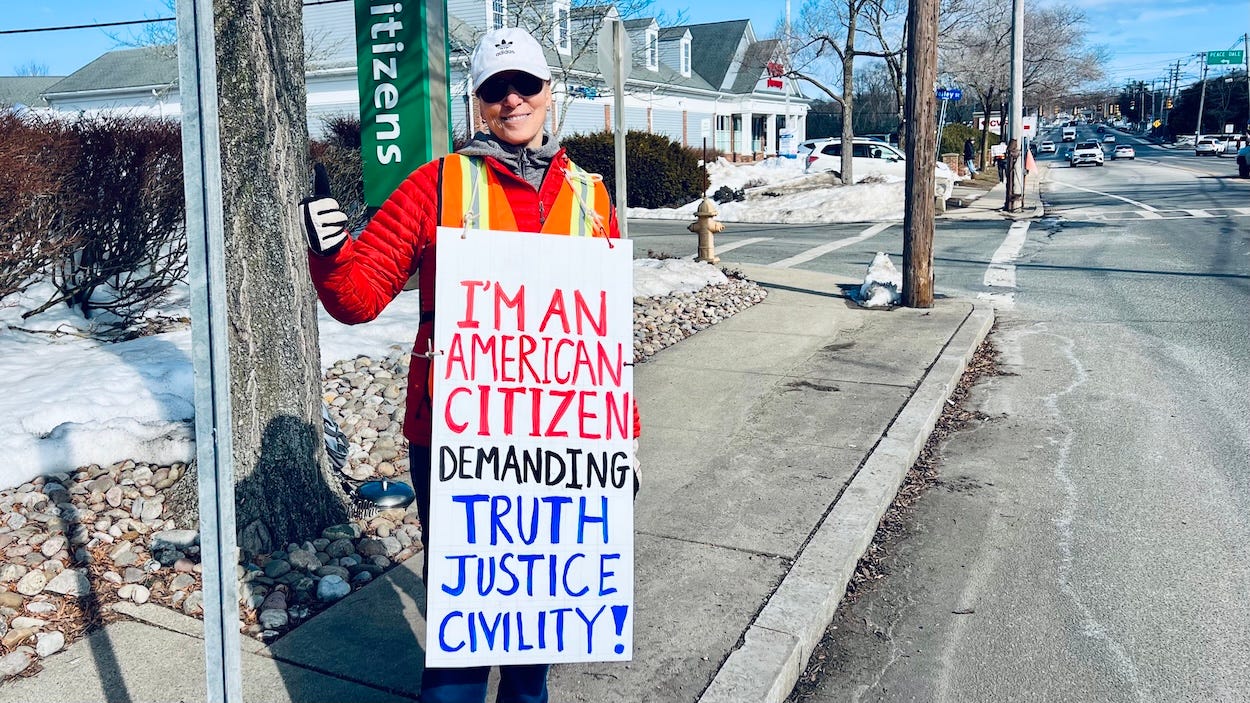 itizens
adidas
PEACE DALE
I'M AN
AMERICAN
CITIZEN
DEMANDING
TRUTH
JUSTICE
CIVILITY!